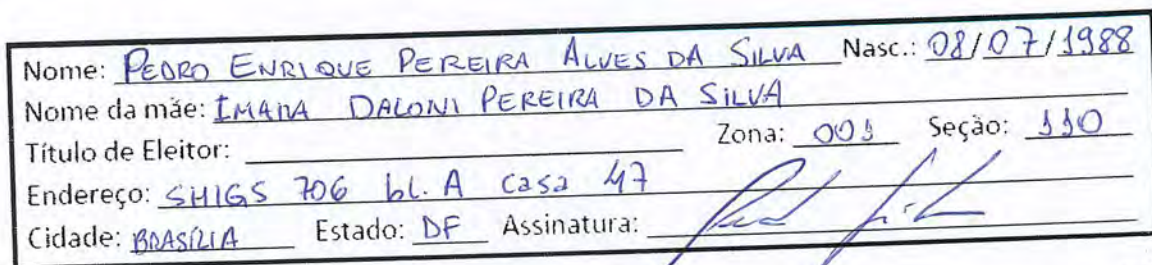 Nome: PEDRO ENRIQUE PEREIRA ALVES DA SILVA Nasc.: 08/07/1988
Nome da mãe: IMARA DALONI PEREIRA DA SILVA
Título de Eleitor: Zona: 001 Seção: 110
Endereço: SHIGS 706 bl. A Casa 47
Cidade: BRASÍLIA Estado: DF Assinatura: